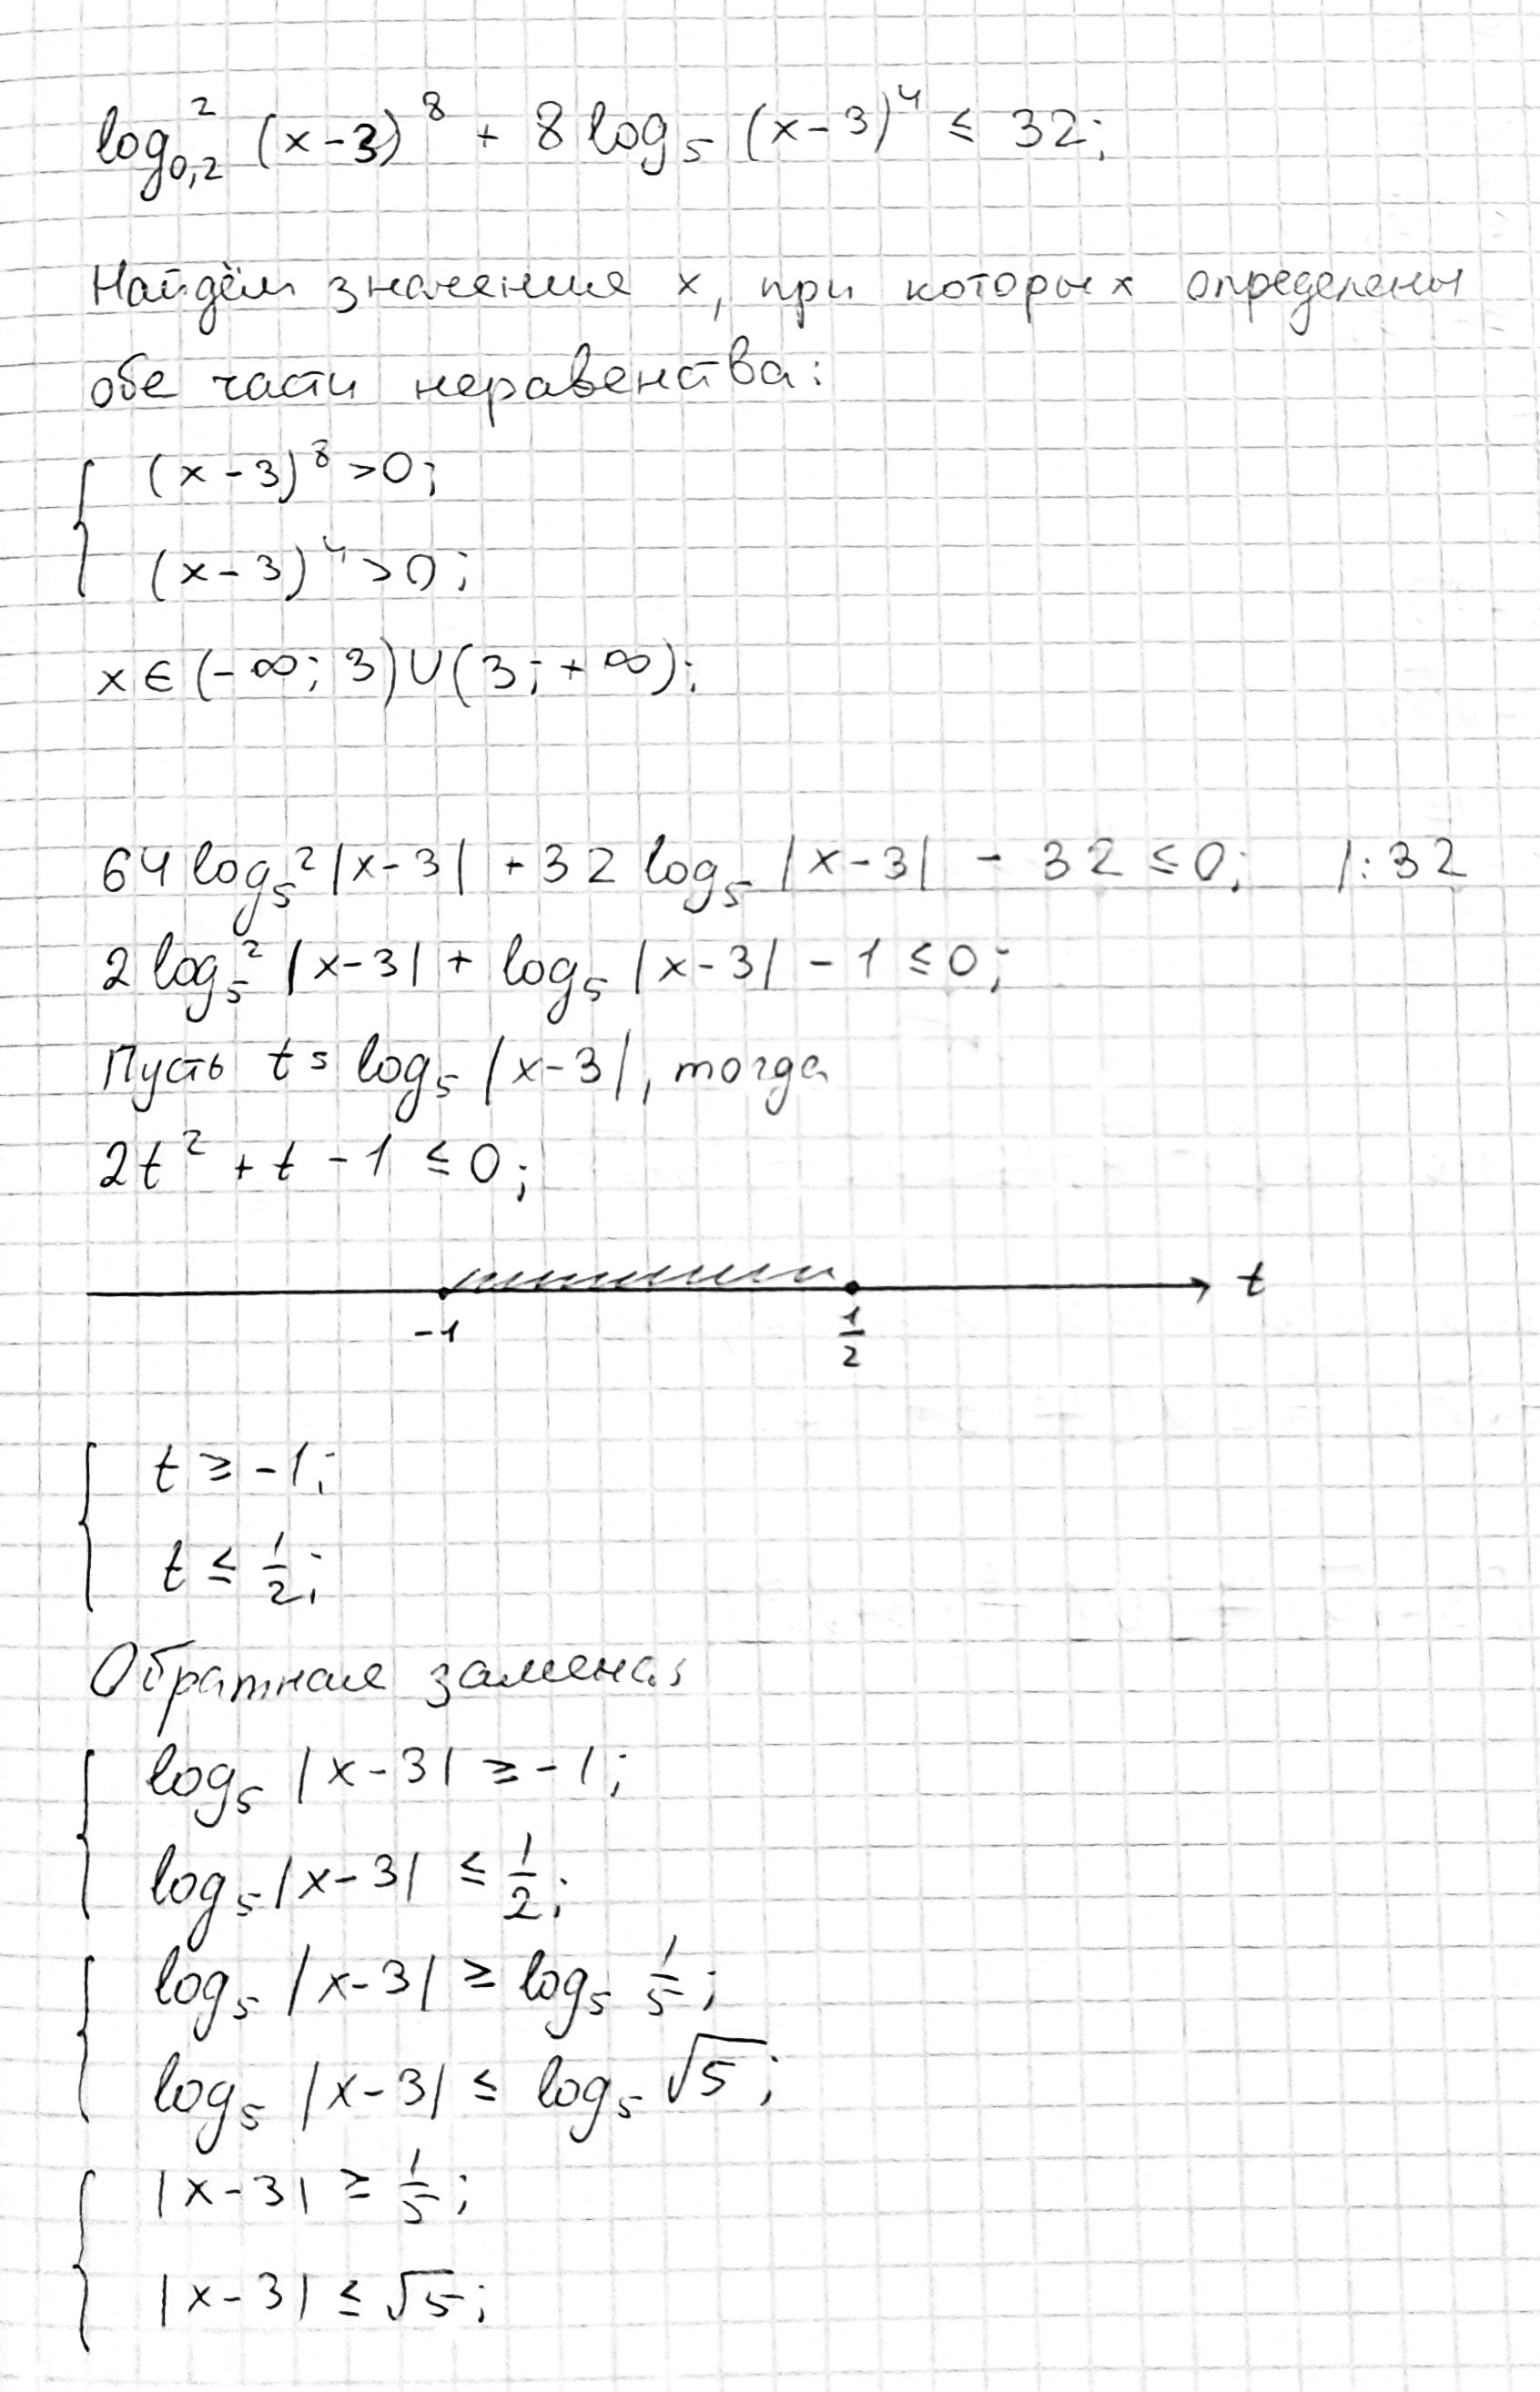 log²₀,₂ (x-3)⁸ + 8 log₅ (x-3)⁴ ≤ 32;
Найдём значения x, при которых определены
обе части неравенства:
(x-3)⁸ >0;
(x-3)⁴ >0;
x ∈ (-∞; 3)∪(3; +∞);
64 log₅² |x-3| + 32 log₅ |x-3| - 32 ≤ 0; |:32
2 log₅² |x-3| + log₅ |x-3| - 1 ≤ 0;
Пусть t = log₅ |x-3|, тогда
2t² + t - 1 ≤ 0;
-1 1/2 t
t ≥ -1;
t ≤ 1/2;
Обратная замена:
log₅ |x-3| ≥ -1;
log₅ |x-3| ≤ 1/2;
log₅ |x-3| ≥ log₅ 1/5;
log₅ |x-3| ≤ log₅ √5;
|x-3| ≥ 1/5;
|x-3| ≤ √5;